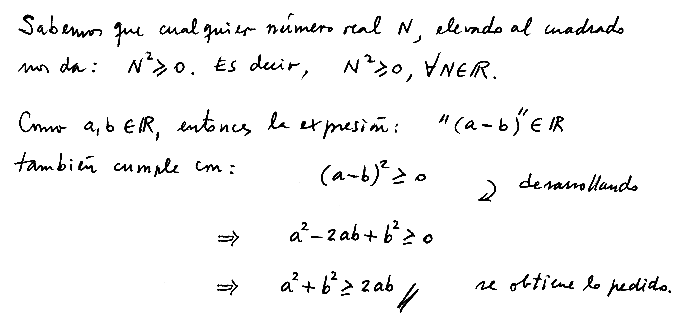 Sabemos que cualquier número real N, elevado al cuadrado
nos da: N² ≥ 0. Es decir, N² ≥ 0, ∀N∈ℝ.
Como a, b ∈ ℝ, entonces la expresión: "(a-b)" ∈ ℝ
también cumple con: (a-b)² ≥ 0 desarrollando
⇒ a² - 2ab + b² ≥ 0
⇒ a² + b² ≥ 2ab // se obtiene lo pedido.